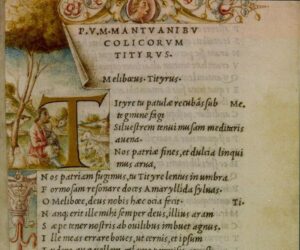 P. V. M. MANTVANI BV
COLICORVM
TITYRVS.
Meliboeus. Tityrus.
TItyre tu patulæ recubãs sub Me.
tegmine fagi
Siluestrem tenui musam meditaris
auena.
Nos patriæ fines, et dulcia linqui
mus arua,
Nos patriam fugimus, tu Tityre lentus in umbra
Formosam resonare doces Amaryllida syluas.
O Meliboee, deus nobis hæc ocia fecit. Ti.
Nanq; erit ille mihi semper deus, illius aram
Sæpe tener nostris ab ouilibus imbuet agnus.
Ille meas errare boues, ut cernis, et ipsum